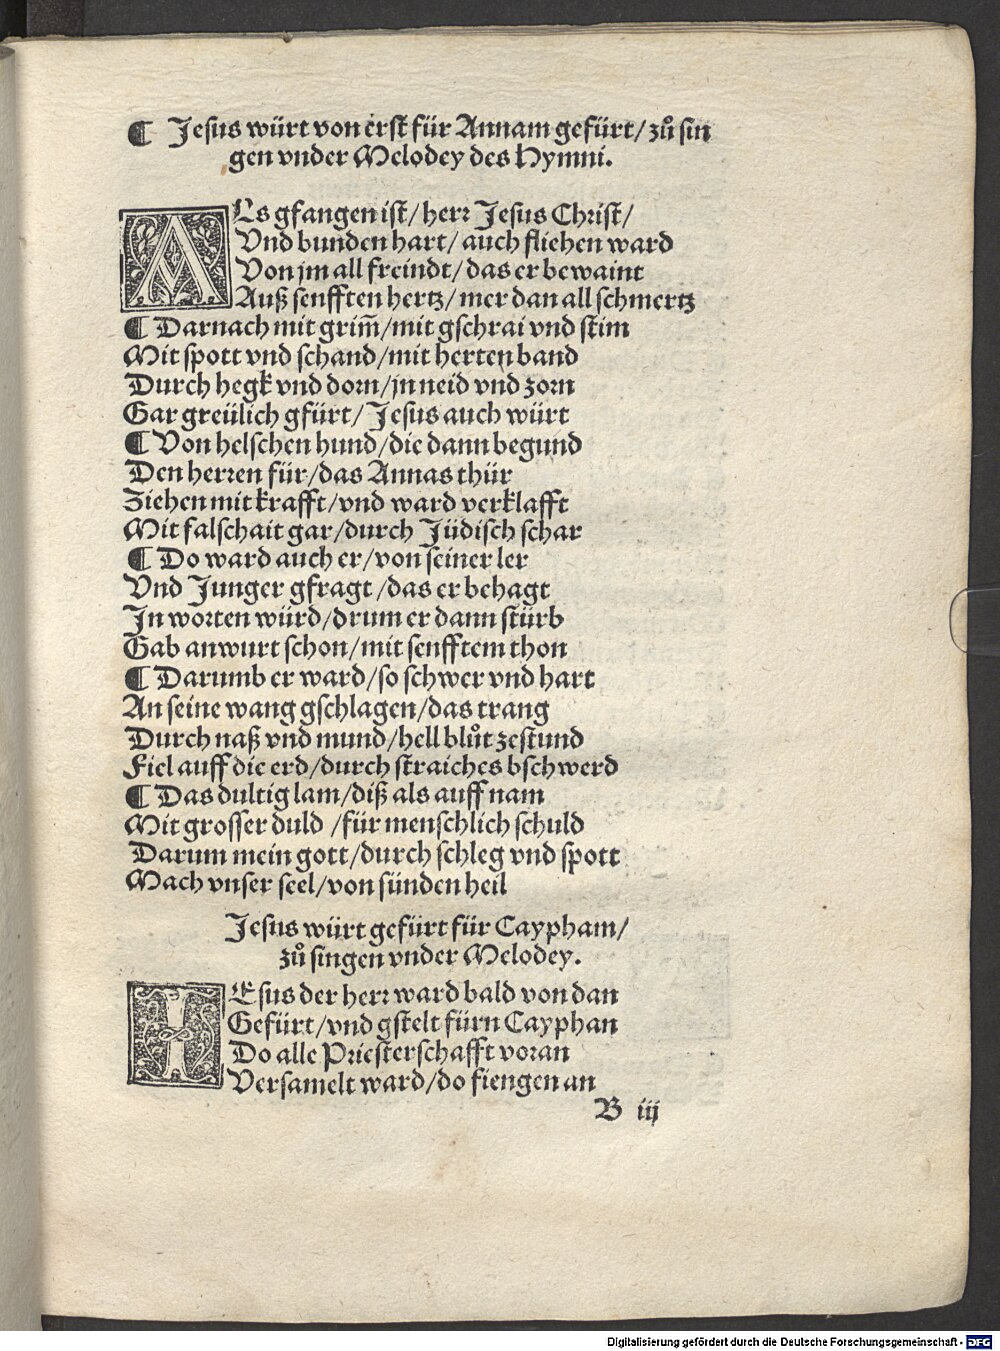 ¶ Jesus würt von erst für Annam gefürt/ zů sin
gen vnder Melodey des Hymni.
ALs gfangen ist/ herr Jesus Christ/
Vnd bunden hart/ auch fliehen ward
Von jm all freindt/ das er bewaint
Auß senfften hertz/ mer dan all schmertz
¶ Darnach mit grim̃/ mit gschrai vnd stim
Mit spott vnd schand/ mit herten band
Durch hegk vnd dorn/ jn neid vnd zorn
Gar greülich gfürt/ Jesus auch würt
¶ Von helschen hund/ die dann begund
Den herren für/ das Annas thür
Ziehen mit krafft/ vnd ward verklafft
Mit falschait gar/ durch Jüdisch schar
¶ Do ward auch er/ von seiner ler
Vnd Junger gfragt/ das er behagt
In worten würd/ drum er dann stürb
Gab anwurt schon/ mit senfftem thon
¶ Darumb er ward/ so schwer vnd hart
An seine wang gschlagen/ das trang
Durch naß vnd mund/ hell blůt zestund
Fiel auff die erd/ durch straiches bschwerd
¶ Das dultig lam/ diß als auff nam
Mit grosser duld / für menschlich schuld
Darum mein gott/ durch schleg vnd spott
Mach vnser seel/ von sünden heil
Jesus würt gefürt für Caypham/
zů singen vnder Melodey.
IEsus der herr ward bald von dan
Gefürt/ vnd gstelt fürn Cayphan
Do alle Priesterschafft voran
Versamelt ward/ do fiengen an
B iij
Digitalisierung gefördert durch die Deutsche Forschungsgemeinschaft - DFG